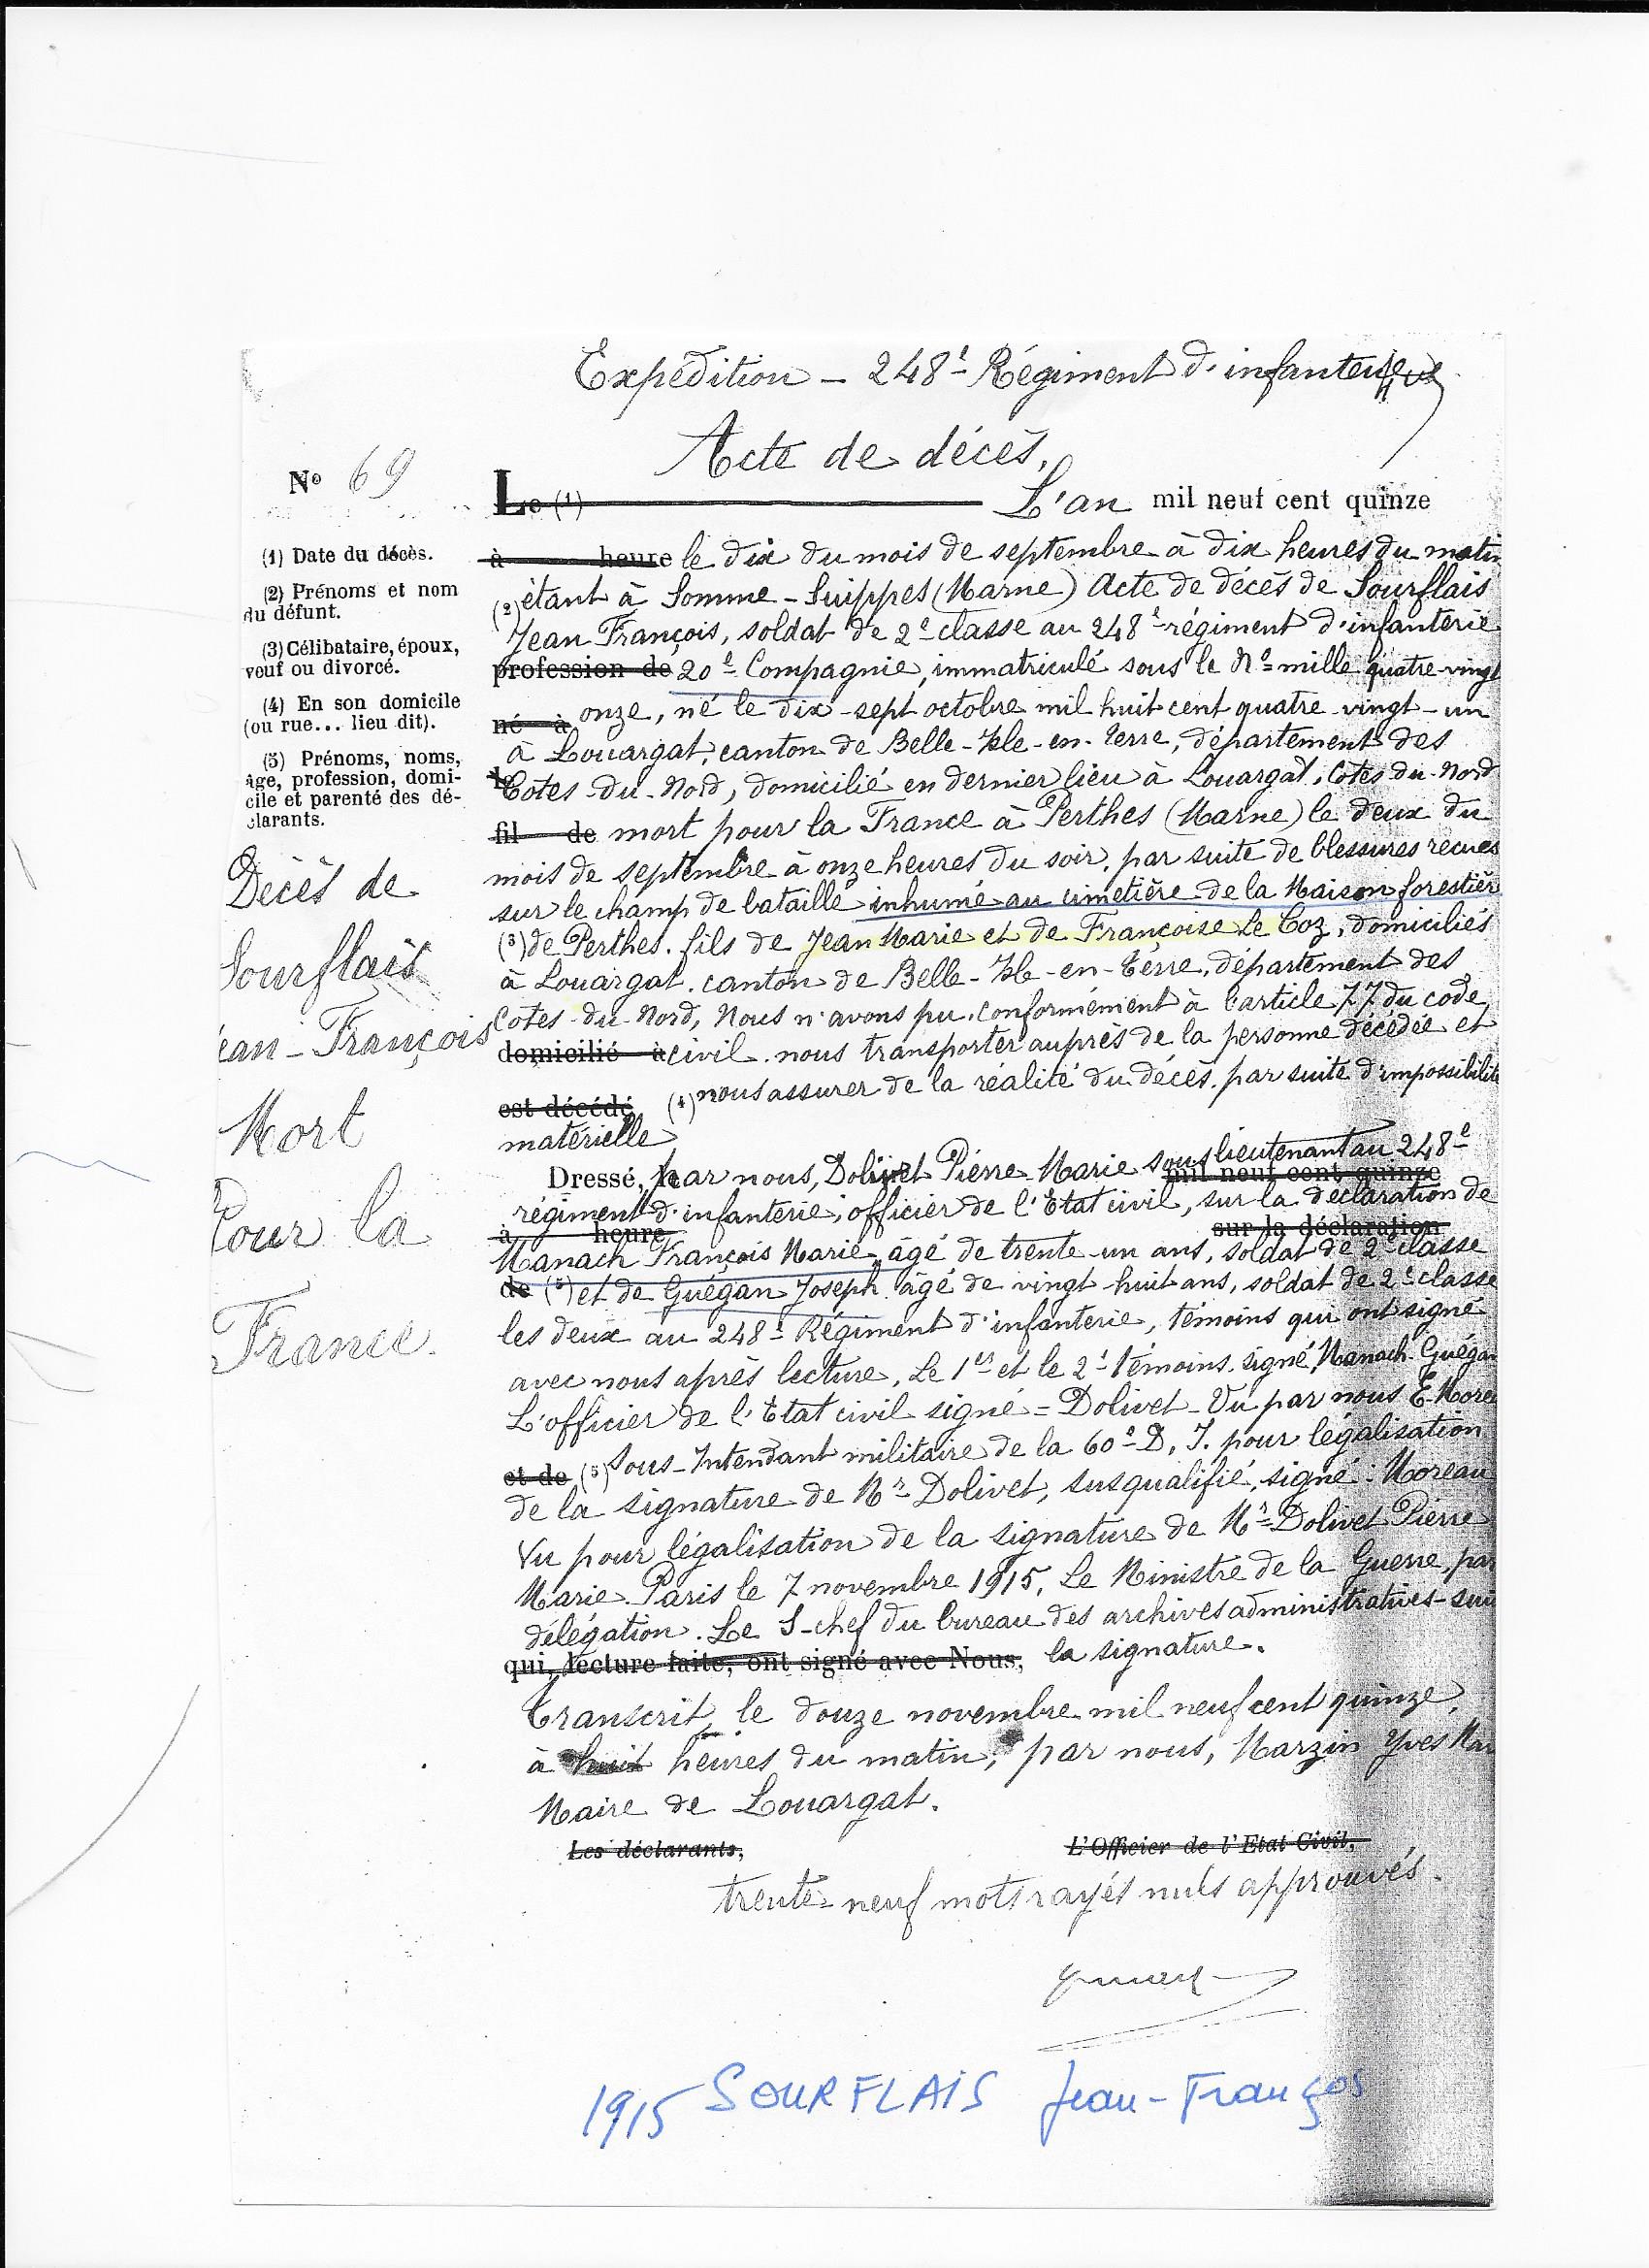 Expédition - 248e Régiment d'infanterie
Acte de décès.
No 69
Le (1) L'an mil neuf cent quinze
(1) Date du décès.
(2) Prénoms et nom
du défunt.
(3) Célibataire, époux,
veuf ou divorcé.
(4) En son domicile
(ou rue... lieu dit).
(5) Prénoms, noms,
âge, profession, domi-
cile et parenté des dé-
clarants.
Décès de
Sourflais
ean-François
Mort
Pour la
France.
à heure le dix du mois de septembre à dix heures du matin
(2) étant à Somme-Suippes (Marne) Acte de décès de Sourflais
Jean François, soldat de 2e classe au 248e régiment d'infanterie
profession de 20e Compagnie, immatriculé sous le No mille quatre-vingt
né à onze, né le dix-sept octobre mil huit cent quatre-vingt-un
à Louargat, canton de Belle-Isle-en-Terre, département des
le Cotes-du-Nord, domicilié en dernier lieu à Louargat, Cotes-du-Nord
fil de mort pour la France à Perthes (Marne) le deux du
mois de septembre à onze heures du soir, par suite de blessures recues
sur le champ de bataille inhumé au cimetière de la Maison forestièr
(3) de Perthes. fils de Jean Marie et de Françoise Le Coz, domiciliés
à Louargat, canton de Belle-Isle-en-Terre, département des
Cotes-du-Nord, Nous n'avons pu, conformément à l'article 77 du code
domicilié à civil, nous transporter auprès de la personne décédée et
est décédé (4) nous assurer de la réalité du décès, par suite d'impossibilité
matérielle
Dressé, le par nous, Dolivet Pierre-Marie sous lieutenant au 248e
mil neuf cent quinze
régiment d'infanterie, officier de l'Etat civil, sur la déclaration de
à heure sur la déclaration
Manach François Marie, âgé de trente-un ans, soldat de 2e classe
de (5) et de Guégan Joseph âgé de vingt huit ans, soldat de 2e classe
les deux au 248e Régiment d'infanterie, témoins qui ont signé
avec nous après lecture, Le 1er et le 2e témoins, signé, Manach Guégan
L'officier de l'Etat civil signé = Dolivet - Vu par nous E. More
et de (5) Sous-Intendant militaire de la 60e D. I. pour légalisation
de la signature de Mr Dolivet, susqualifié, signé : Moreau
Vu pour légalisation de la signature de Mr Dolivet Pierre
Marie. Paris le 7 novembre 1915, Le Ministre de la Guerre, par
délégation. Le S-chef du bureau des archives administratives - suit
qui, lecture faite, ont signé avec Nous, la signature.
Transcrit, le douze novembre mil neuf cent quinze,
à huit heures du matin, par nous, Marzin Yves Mar
Maire de Louargat.
Les déclarants, L'Officier de l'Etat Civil,
trente-neuf mots rayés nuls approuvés.
1915 SOURFLAIS Jean-François